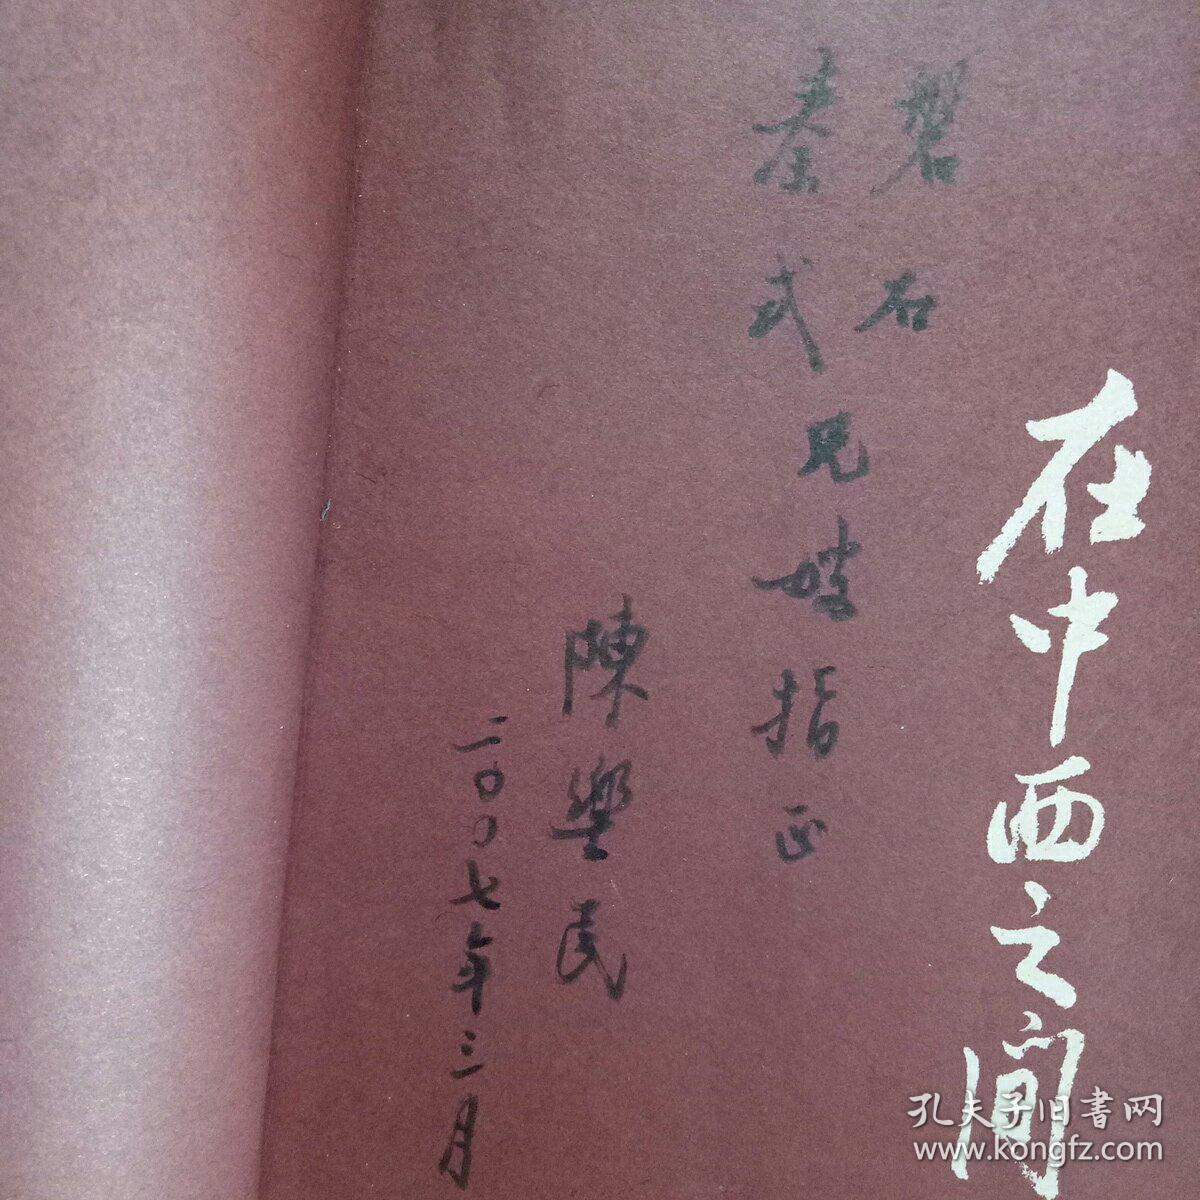 在中西之间
磐石
秦式兄嫂指正
陳樂民
二〇〇七年三月
孔夫子旧書网
www.kongfz.com